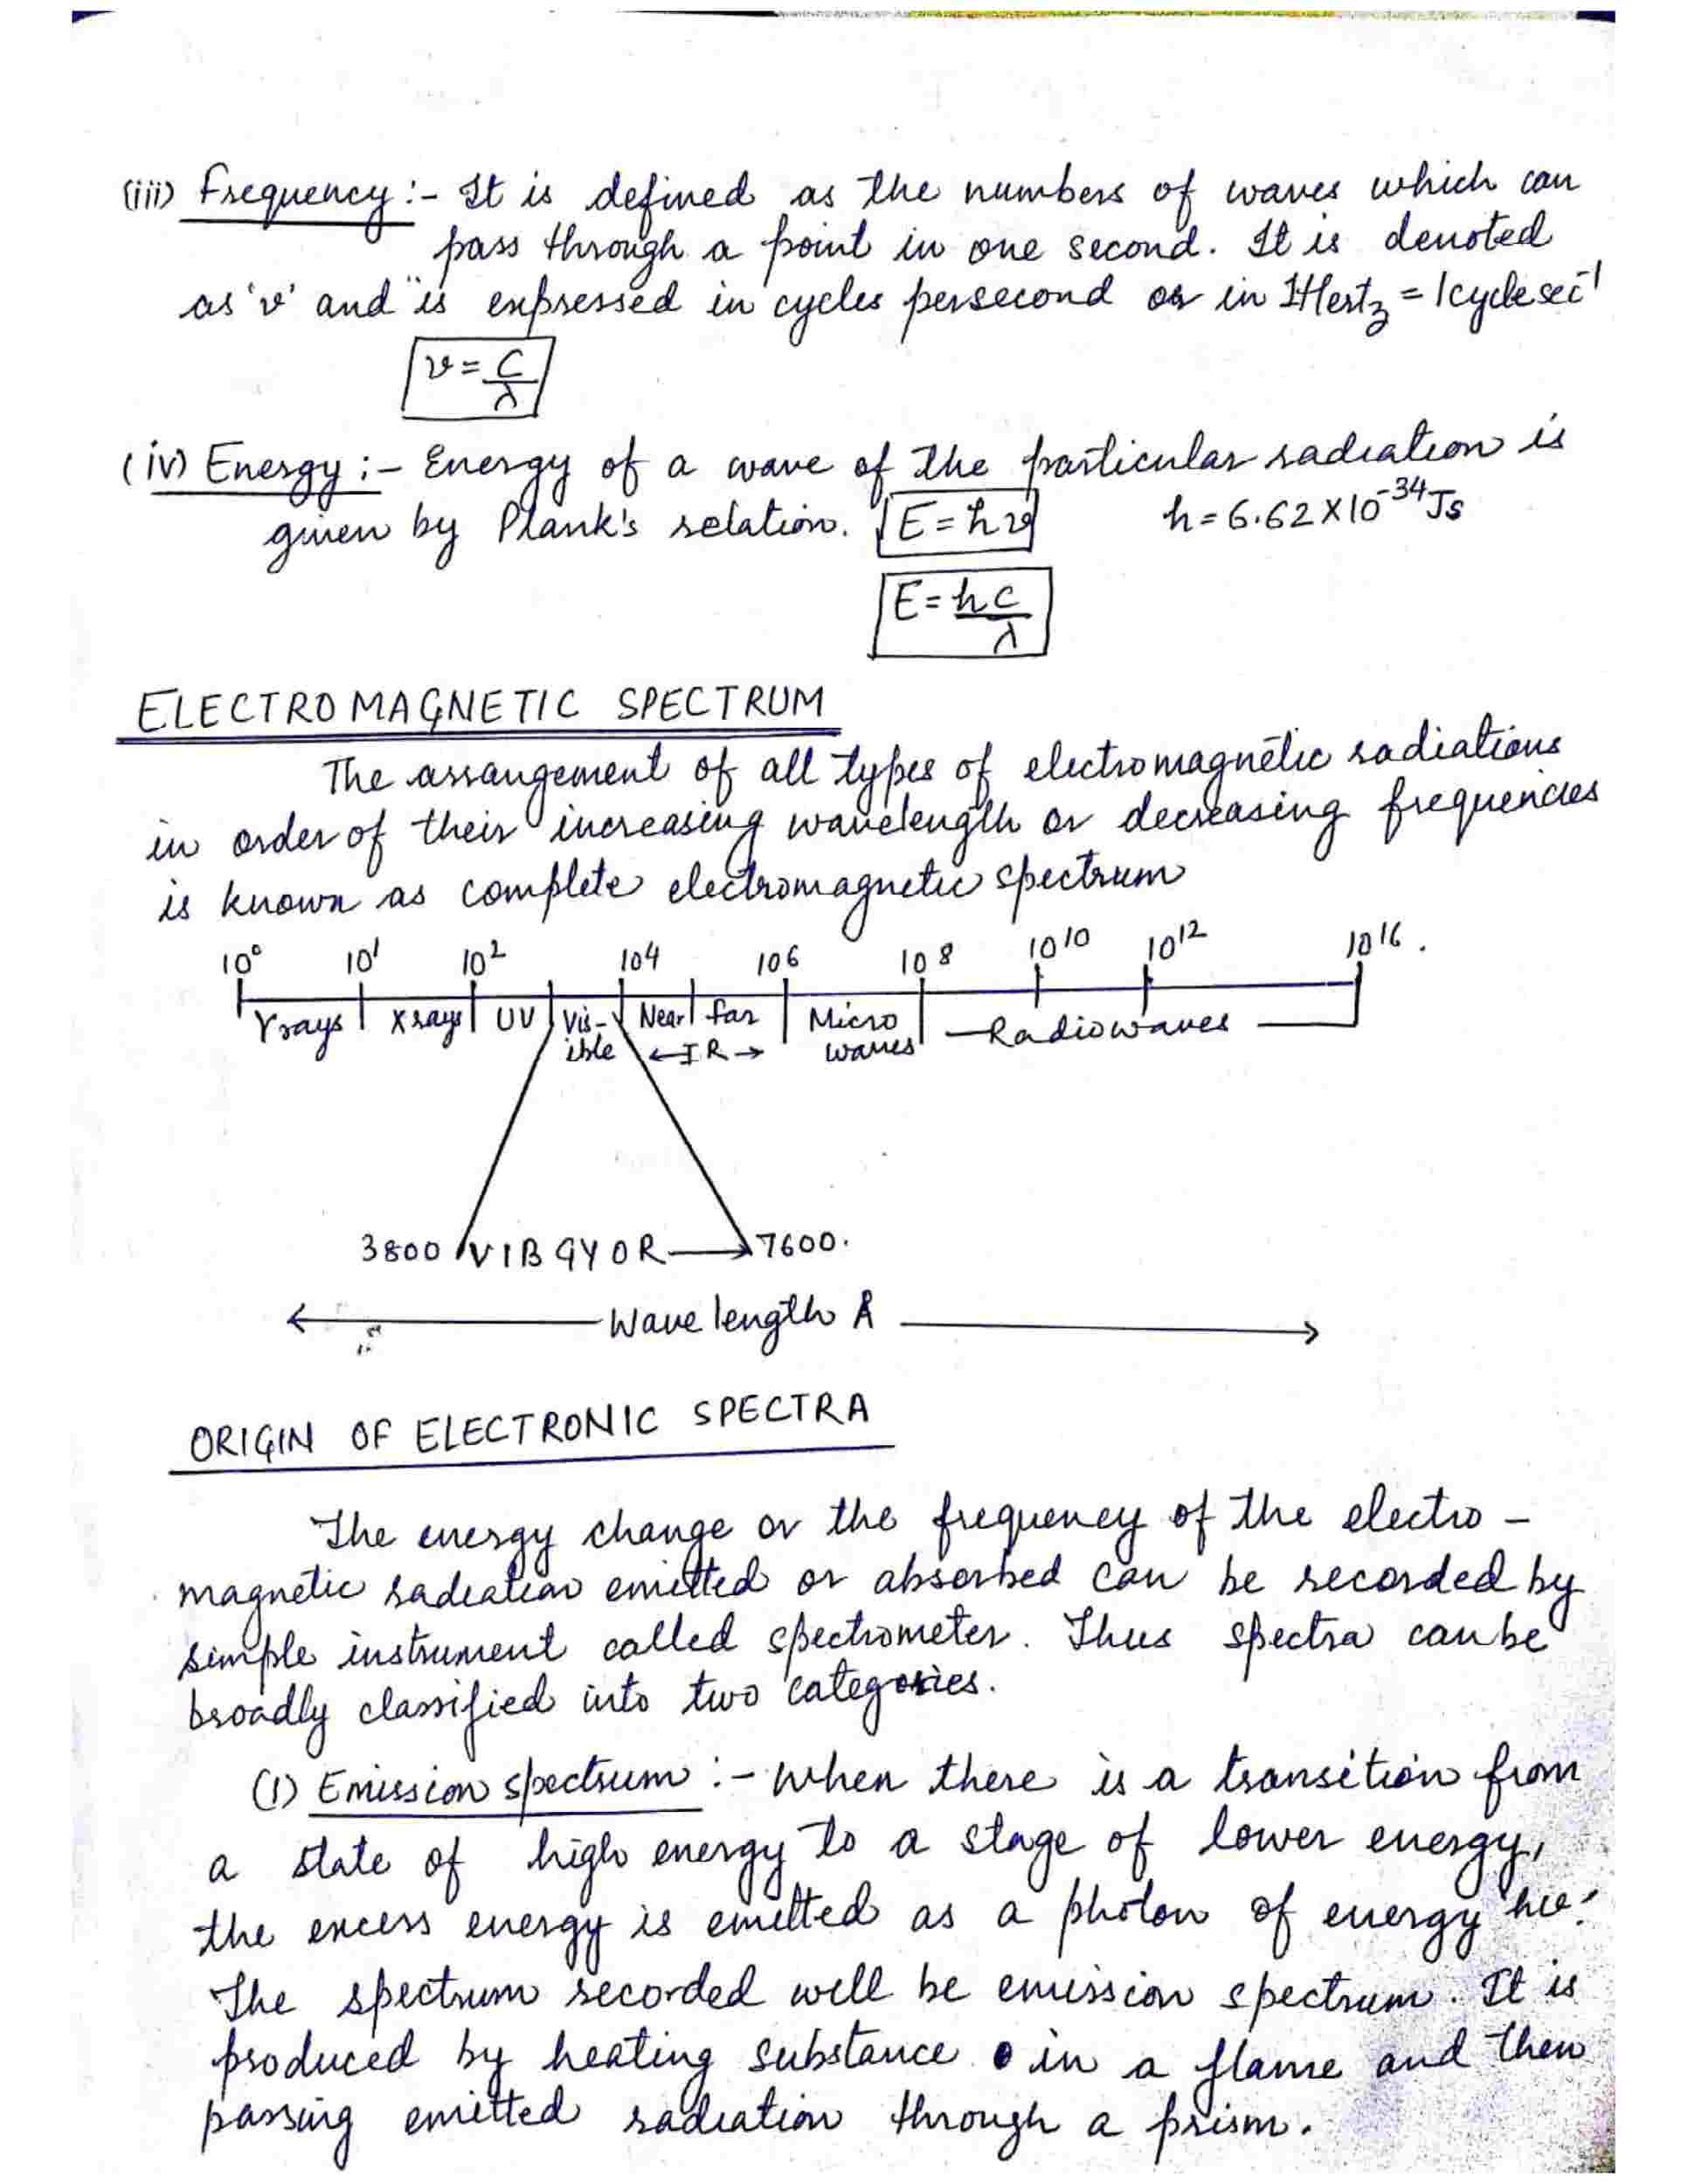 (iii) Frequency :- It is defined as the numbers of waves which can
pass through a point in one second. It is denoted
as 'ν' and is expressed in cycles persecond or in 1Hertz = 1cycle sec⁻¹
ν = C/λ
(iv) Energy :- Energy of a wave of the particular radiation is
given by Plank's relation. E = hν h = 6.62 X 10⁻³⁴ Js
E = hc/λ
ELECTROMAGNETIC SPECTRUM
The arrangement of all types of electromagnetic radiations
in order of their increasing wavelength or decreasing frequencies
is known as complete electromagnetic spectrum
10⁰ 10¹ 10² 10⁴ 10⁶ 10⁸ 10¹⁰ 10¹² 10¹⁶.
γrays X rays UV Vis- Near far Micro Radiowaves
ible ← IR → waves
3800 VIBGYOR → 7600.
← Wave length Å →
ORIGIN OF ELECTRONIC SPECTRA
The energy change or the frequency of the electro -
magnetic radiation emitted or absorbed can be recorded by
simple instrument called spectrometer. Thus spectra can be
broadly classified into two categories.
(1) Emission spectrum :- When there is a transition from
a state of high energy to a stage of lower energy,
the excess energy is emitted as a photon of energy 'hν'.
The spectrum recorded will be emission spectrum. It is
produced by heating substance in a flame and then
passing emitted radiation through a prism.